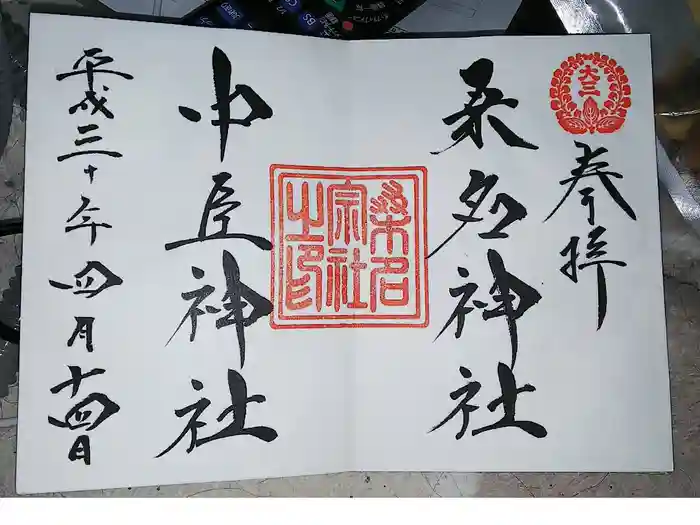 奉拝
桑名神社
中臣神社
平成三十年四月十四日
桑名
宗社
之印